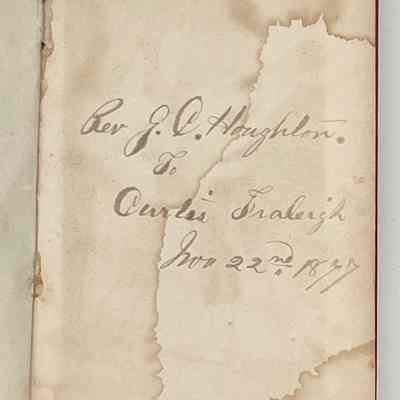 Rev J. C. Houghton.
To
Curtis Fraleigh
Nov 22nd 1877